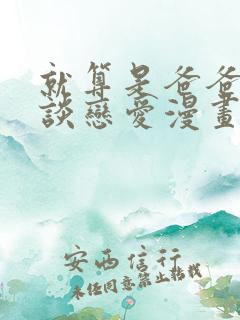 就算是爸爸
談戀愛漫畫
安西信行
未经同意禁止转载